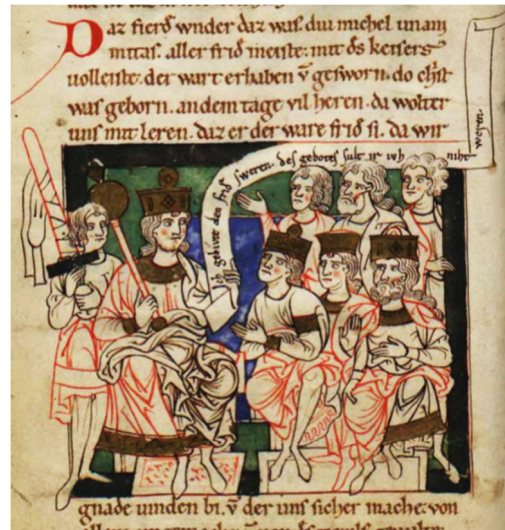 Daz fierd wnder daz was. diu michel unani
mitas. aller frid meiste. mit ds keisers
volleiste. der wart erhaben v̄ gesworn. do chͥst
was geborn. an dem tage vil heren. da wolter
uns mit leren. daz er der ware frid si. da wir
ich gebivte den frid sweren. des gebotes sult ir iuh niht
weren.
gnade uinden bi. v̄ der uns sicher mache. von